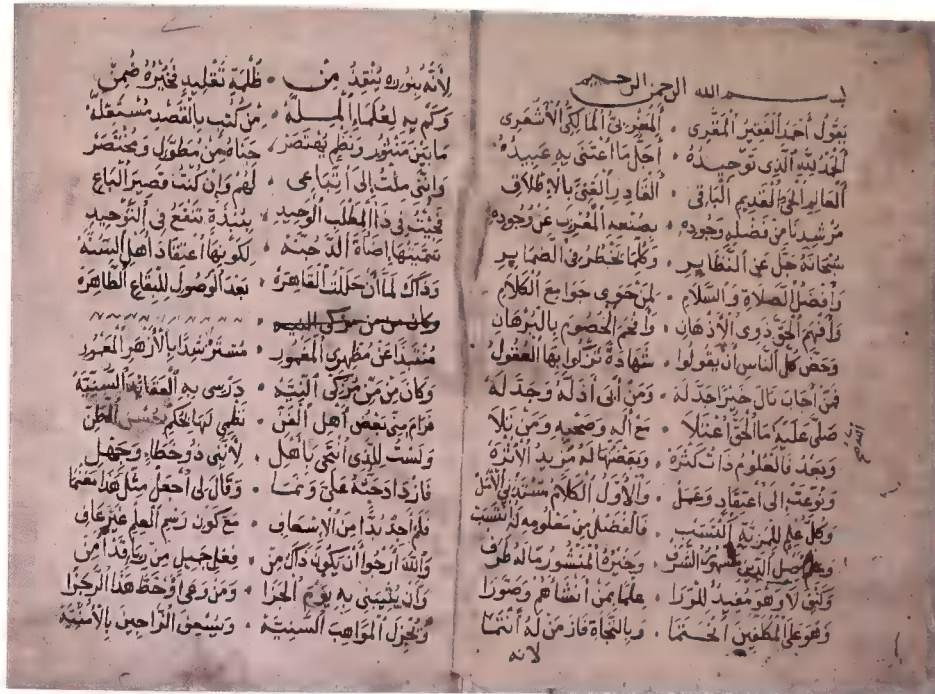 بسم الله الرحمن الرحيم
يَقُولُ أَحْمَدُ الْفَقِيرُ الْمَقَّرِي ۰ الْمَغْرِبِيُّ الْمَالِكِيُّ الْأَشْعَرِي
الْحَمْدُ لِلَّهِ الَّذِي تَوْحِيدُهُ ۰ أَجَلُّ مَا اعْتَنَى بِهِ عَبِيدُهُ
الْعَالِمِ الْحَيِّ الْقَدِيمِ الْبَاقِي ۰ الْقَادِرِ الْغَنِيِّ بِالْإِطْلَاقِ
مُرْشِدِنَا مِنْ فَضْلِهِ وَجُودِهِ ۰ بِصُنْعِهِ الْمُعْرِبِ عَنْ وُجُودِهِ
سُبْحَانَهُ جَلَّ عَنِ النَّظَايِرِ ۰ وَكُلِّمَا يَخْطُرُ فِي الضَّمَايِرِ
وَأَفْضَلُ الصَّلَاةِ وَالسَّلَامِ ۰ لِمَنْ حَوَى جَوَامِعَ الْكَلَامِ
وَأَفْهَمَ الْحَقَّ ذَوِي الْأَذْهَانِ ۰ وَأَفْحَمَ الْخُصُومَ بِالْبُرْهَانِ
وَحَضَّ كُلَّ النَّاسِ أَنْ يَقُولُوا ۰ شَهَادَةً بِهَا الْعُقُولُ
فَمَنْ أَجَابَ نَالَ خَيْرًا جَذَلَهُ ۰ وَمَنْ أَبَى أَذَلَّهُ وَجَدَلَهُ
صَلَّى عَلَيْهِ مَا الْحَقُّ اعْتَلَا ۰ مَعْ آلِهِ وَصَحْبِهِ وَمَنْ تَلَا
وَبَعْدُ فَالْعُلُومُ ذَاتُ كَثْرَهْ ۰ وَبَعْضُهَا لَهُ مَزِيدُ الْأُثْرَهْ
وَنُوِّعَتْ إِلَى اعْتِقَادٍ وَعَمَلْ ۰ وَالْأَوَّلُ الْكَلَامُ الْأَمَلْ
وَكُلُّ عِلْمٍ لِلْمَزِيَّةِ اكْتَسَبْ ۰ فَالْفَضْلُ مِنْ مَعْلُومِهِ لَهُ انْتَسَبْ
وَعِلْمُ أَصْلِ الدِّينِ مَشْهُورُ الشَّرَفْ ۰ وَخَيْرُهُ الْمَنْشُورُ مَا لَهُ طَرَفْ
وَكَيْفَ لَا وَهْوَ مُفِيدٌ لِلْوَرَا ۰ عِلْمًا بِمَنْ أَنْشَأَهُمْ وَصَوَّرَا
وَهْوَ عَلَى الْمُكَلَّفِينَ انْحَتَمَا ۰ وَبِالنَّجَاةِ فَازَ مَنْ لَهُ انْتَمَا
لانه
لِأَنَّهُ بِنُورِهِ يُنْقِذُ مِنْ ۰ ظُلْمَةِ تَقْلِيدٍ فَخَيْرُهُ ضُمِنْ
وَكَمْ بِهِ لِعُلَمَاءِ الْمِلَّهْ ۰ مِنْ كُتُبٍ بِالْقَصْدِ مُسْتَقِلَّهْ
مَا بَيْنَ مَنْثُورٍ وَنَظْمٍ يُهْتَصَرْ ۰ جَنَاهُ مِنْ مُطَوَّلٍ وَمُخْتَصَرْ
وَإِنَّنِي مِلْتُ إِلَى اتِّبَاعِي ۰ لَهُمْ وَإِنْ كُنْتُ قَصِيرَ الْبَاعِ
فَجِئْتُ فِي ذَا الْمَطْلَبِ الْوَحِيدِ ۰ بِنُبْذَةٍ تَنْفَعُ فِي التَّوْحِيدِ
سَمَّيْتُهَا إِضَاءَةَ الدُّجُنَّهْ ۰ لِكَوْنِهَا اعْتِقَادَ أَهْلِ السُّنَّهْ
وَذَاكَ لَمَّا أَنْ حَلَلْتُ الْقَاهِرَهْ ۰ بَعْدَ الْوُصُولِ لِلْبِقَاعِ الطَّاهِرَهْ
وكان من من مزكى النيه ۰
مُنْتَبِذًا عَنْ مُظْهِرِي الْمَغْمُورِ ۰ مُسْتَرْشِدًا بِالْأَزْهَرِ الْمَعْمُورِ
وَكَانَ مِنْ مَنِّ مُزَكِّي النِّيَّهْ ۰ دَرْسِي بِهِ الْعَقَائِدَ السَّنِيَّهْ
فَرَامَ مِنِّي بَعْضُ أَهْلِ الْفَنِّ ۰ نَظْمِي لَهَا بِحُسْنِ الظَّنِّ
وَلَسْتُ لِلَّذِي انْتَحَى بِأَهْلِ ۰ لِأَنَّنِي ذُو خَطَإٍ وَجَهْلِ
فَازْدَادَ حَثُّهُ عَلَيَّ وَنَمَا ۰ وَقَالَ لِي اجْعَلْ مِثْلَ هَذَا مَغْنَمَا
فَلَمْ أَجِدْ بُدًّا مِنَ الْإِسْعَافِ ۰ مَعْ كَوْنِ رَسْمِ الْعِلْمِ غَيْرَ عَافِ
وَاللَّهَ أَرْجُوا أَنْ يَكُونَ ذَاكَ مِنْ ۰ فِعْلٍ جَمِيلٍ مِنْ رِيَاءٍ قَدْ أُمِنْ
وَأَنْ يُثِيبَنِي بِهِ يَوْمَ الْجَزَا ۰ وَمَنْ وَعَى أَوْ خَطَّ هَذَا الرَّجَزَا
وَيُجْزِلَ الْمَوَاهِبَ السَّنِيَّهْ ۰ وَيُسْعِفَ الرَّاجِينَ بِالْأُمْنِيَّهْ